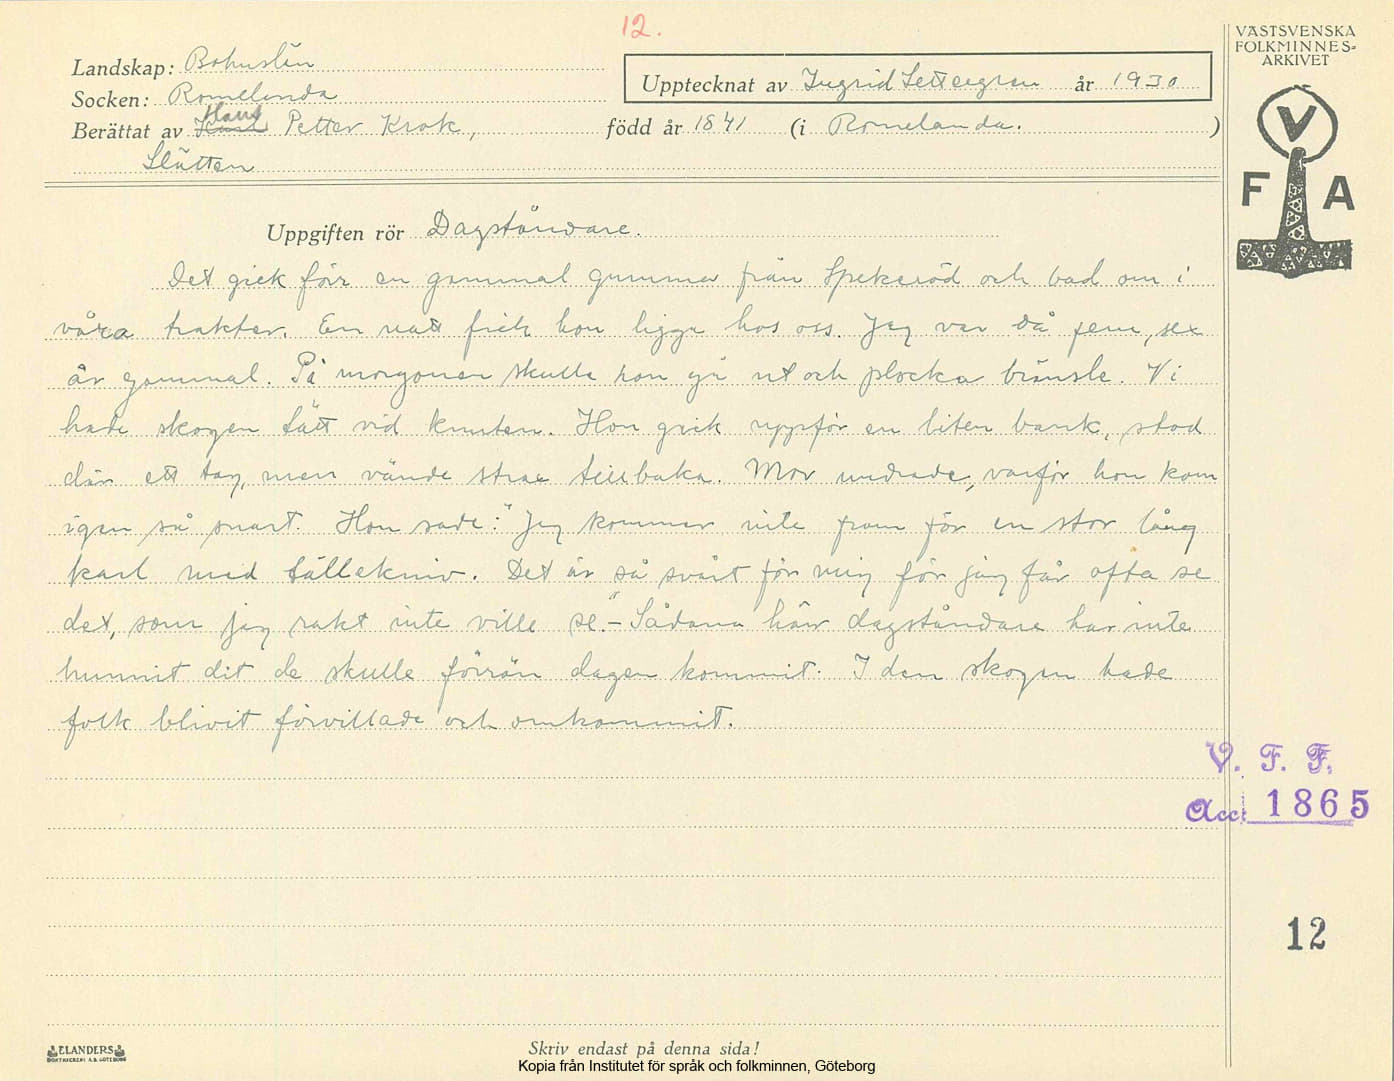 12.
VÄSTSVENSKA
FOLKMINNES-
ARKIVET
Landskap: Bohuslän
Upptecknat av Ingrid Settergren år 1930
Socken: Romelanda
Berättat av Hans Petter Krok, född år 1841 (i Romelanda.)
Slätten
V
F A
Uppgiften rör Dagståndare.
Det gick förr en gammal gumma från Spekeröd och bad om i
våra trakter. En natt fick hon ligga hos oss. Jag var då fem, sex
år gammal. På morgonen skulle hon gå ut och plocka bränsle. Vi
hade skogen tätt vid knuten. Hon gick uppför en liten bank, stod
där ett tag, men vände strax tillbaka. Mor undrade, varför hon kom
igen så snart. Hon sade: "Jag kommer inte fram för en stor lång
karl med tällekniv. Det är så svårt för mig för jag får ofta se
det, som jag rakt inte ville se." - Sådana här dagståndare har inte
hunnit dit de skulle förrän dagen kommit. I den skogen hade
folk blivit förvillade och omkommit.
V. F. F.
Acc. 1865
12
ELANDERS
Skriv endast på denna sida!
Kopia från Institutet för språk och folkminnen, Göteborg